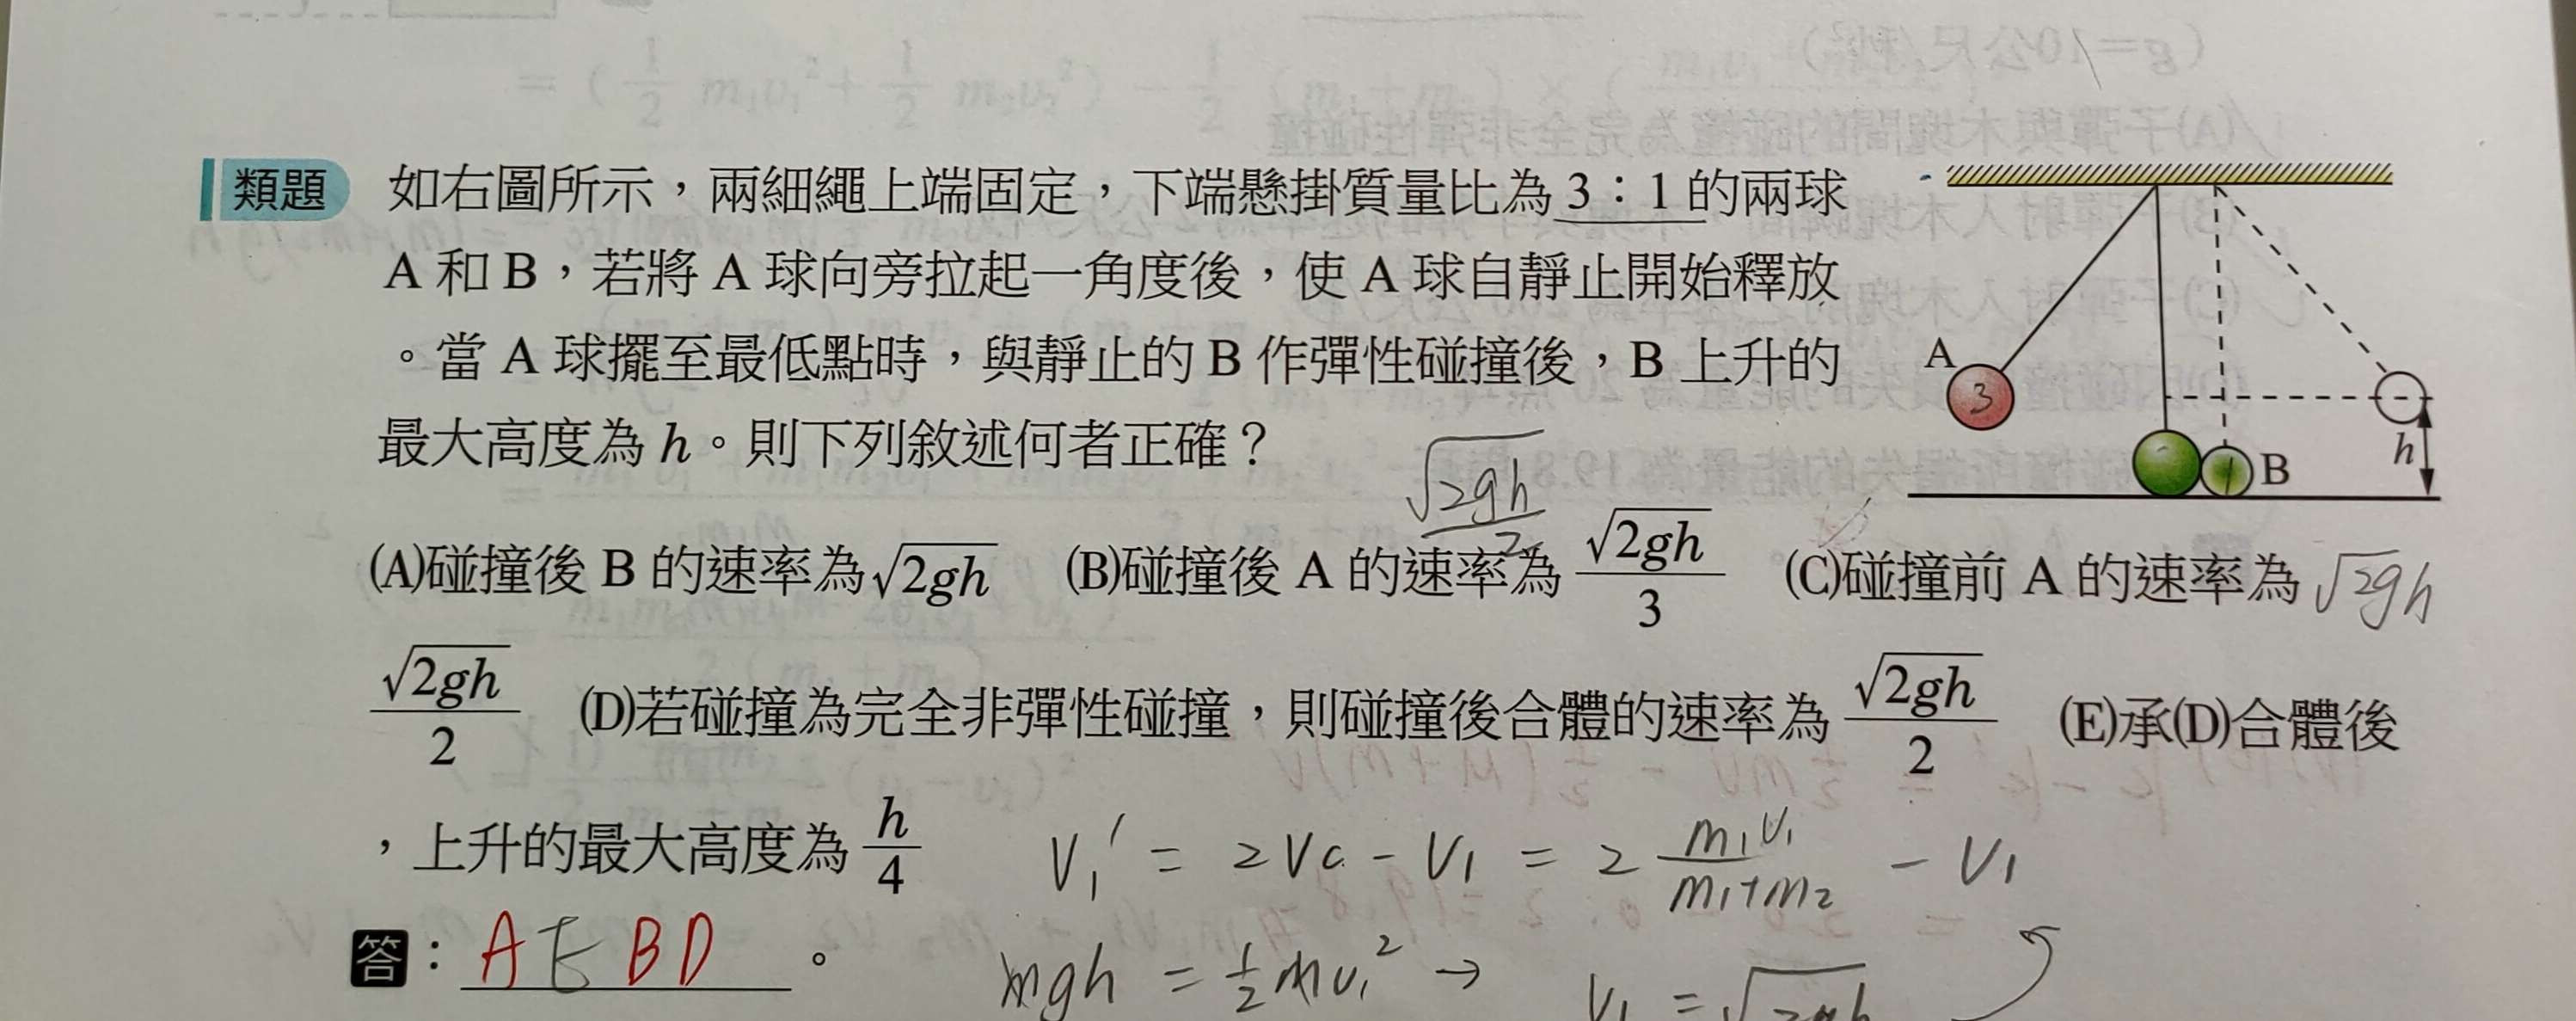 類題 如右圖所示，兩細繩上端固定，下端懸掛質量比為 3：1 的兩球
A 和 B，若將 A 球向旁拉起一角度後，使 A 球自靜止開始釋放
。當 A 球擺至最低點時，與靜止的 B 作彈性碰撞後，B 上升的
最大高度為 h。則下列敘述何者正確？
A
3
1
B
h
√2gh/2
(A)碰撞後 B 的速率為√2gh (B)碰撞後 A 的速率為 √2gh/3 (C)碰撞前 A 的速率為 √2gh
√2gh/2 (D)若碰撞為完全非彈性碰撞，則碰撞後合體的速率為 √2gh/2 (E)承(D)合體後
，上升的最大高度為 h/4
V₁′ = 2Vc - V₁ = 2 m₁v₁/m₁+m₂ - V₁
答：A E B D。
mgh = 1/2 m v₁² →